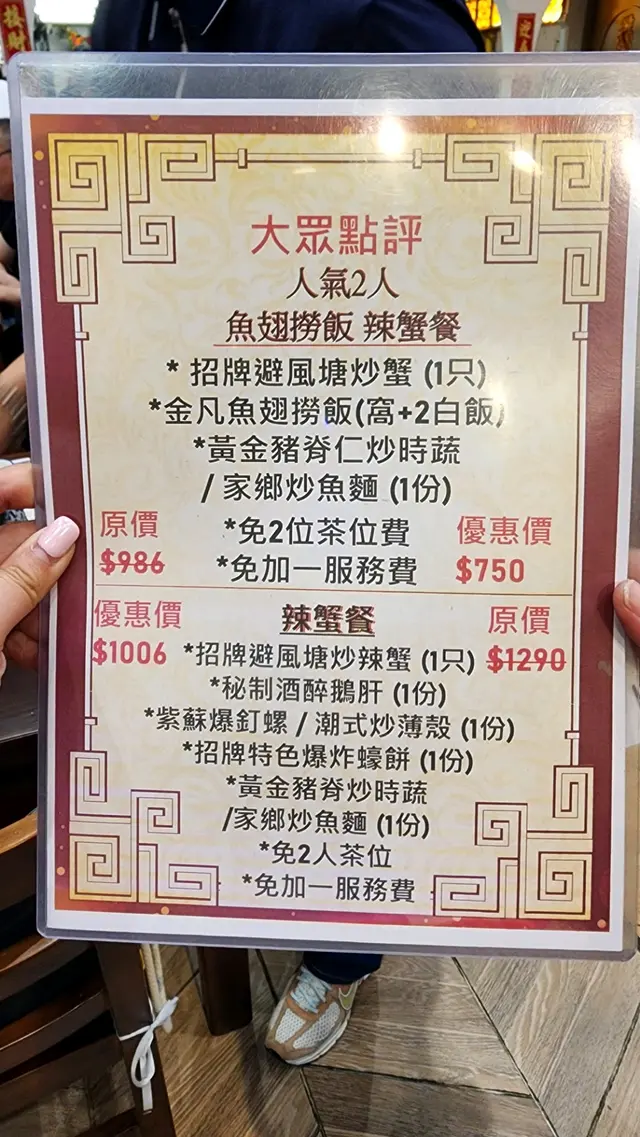 大眾點評
人氣2人
魚翅撈飯 辣蟹餐
* 招牌避風塘炒蟹 (1只)
*金凡魚翅撈飯(窩+2白飯)
*黃金豬脊仁炒時蔬
/ 家鄉炒魚麵 (1份)
原價 *免2位茶位費 優惠價
$986 *免加一服務費 $750
優惠價 辣蟹餐 原價
$1006 *招牌避風塘炒辣蟹 (1只) $1290
*秘制酒醉鵝肝 (1份)
*紫蘇爆釘螺 / 潮式炒薄殼 (1份)
*招牌特色爆炸蠔餅 (1份)
*黃金豬脊炒時蔬
/家鄉炒魚麵 (1份)
*免2人茶位
*免加一服務費